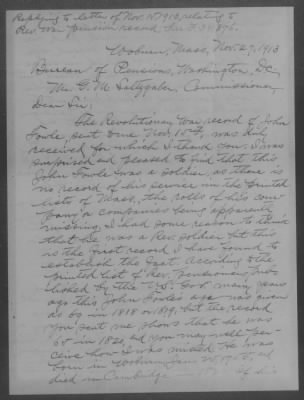 Replying to letter of Nov. 15, 1913, relating to
Rev. War pension record Sur. F. 34,876.
Woburn, Mass, Nov. 27, 1913
Bureau of Pensions, Washington, D.C.
Mr. G. M. Saltzgaber, Commissioner,
Dear Sir;
The Revolutionary War record of John
Fowle, sent me Nov. 15th, was duly
received for which I thank you. I was
surprised and pleased to find that this
John Fowle was a soldier, as there is
no record of his service in the printed
lists of Mass, the rolls of his com-
pany or companies being apparently
missing. I had some reason to think
that he was a Rev. soldier but this
is the first record I have found to
establish the fact. According to the
printed list of Rev. pensioners, pub-
lished by the U.S. Gov't many years
ago this John Fowle's age was given
as 63 in 1818 or 1819, but the record
you sent me shows that he was
65 in 1820, so you may well per-
ceive how I was misled. He was
born in Woburn and
died in Cambridge of his